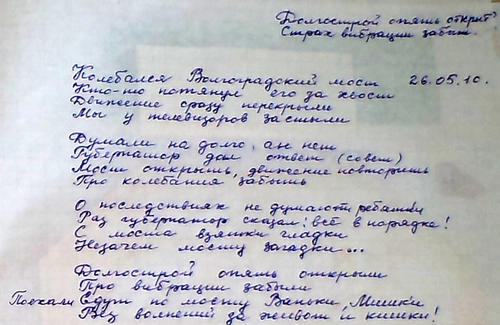 Долгострой опять открыт
Страх вибрации забыт.
Колебался Волгоградский мост 26.05.10.
Кто-то потянул его за хвост
Движение сразу перекрыли
Мы у телевизоров застыли
Думали на долго, ан нет
Губернатор дал ответ (совет)
Мост открыть, движение повторить
Про колебания забыть
О последствиях не думают ребятки
Раз губернатор сказал: всё в порядке!
С моста взятки гладки
Незачем мосту загадки...
Долгострой опять открыли
Про вибрации забыли
Поехали Едут по мосту Ваньки, Мишки
Без волнений за живот и кишки!